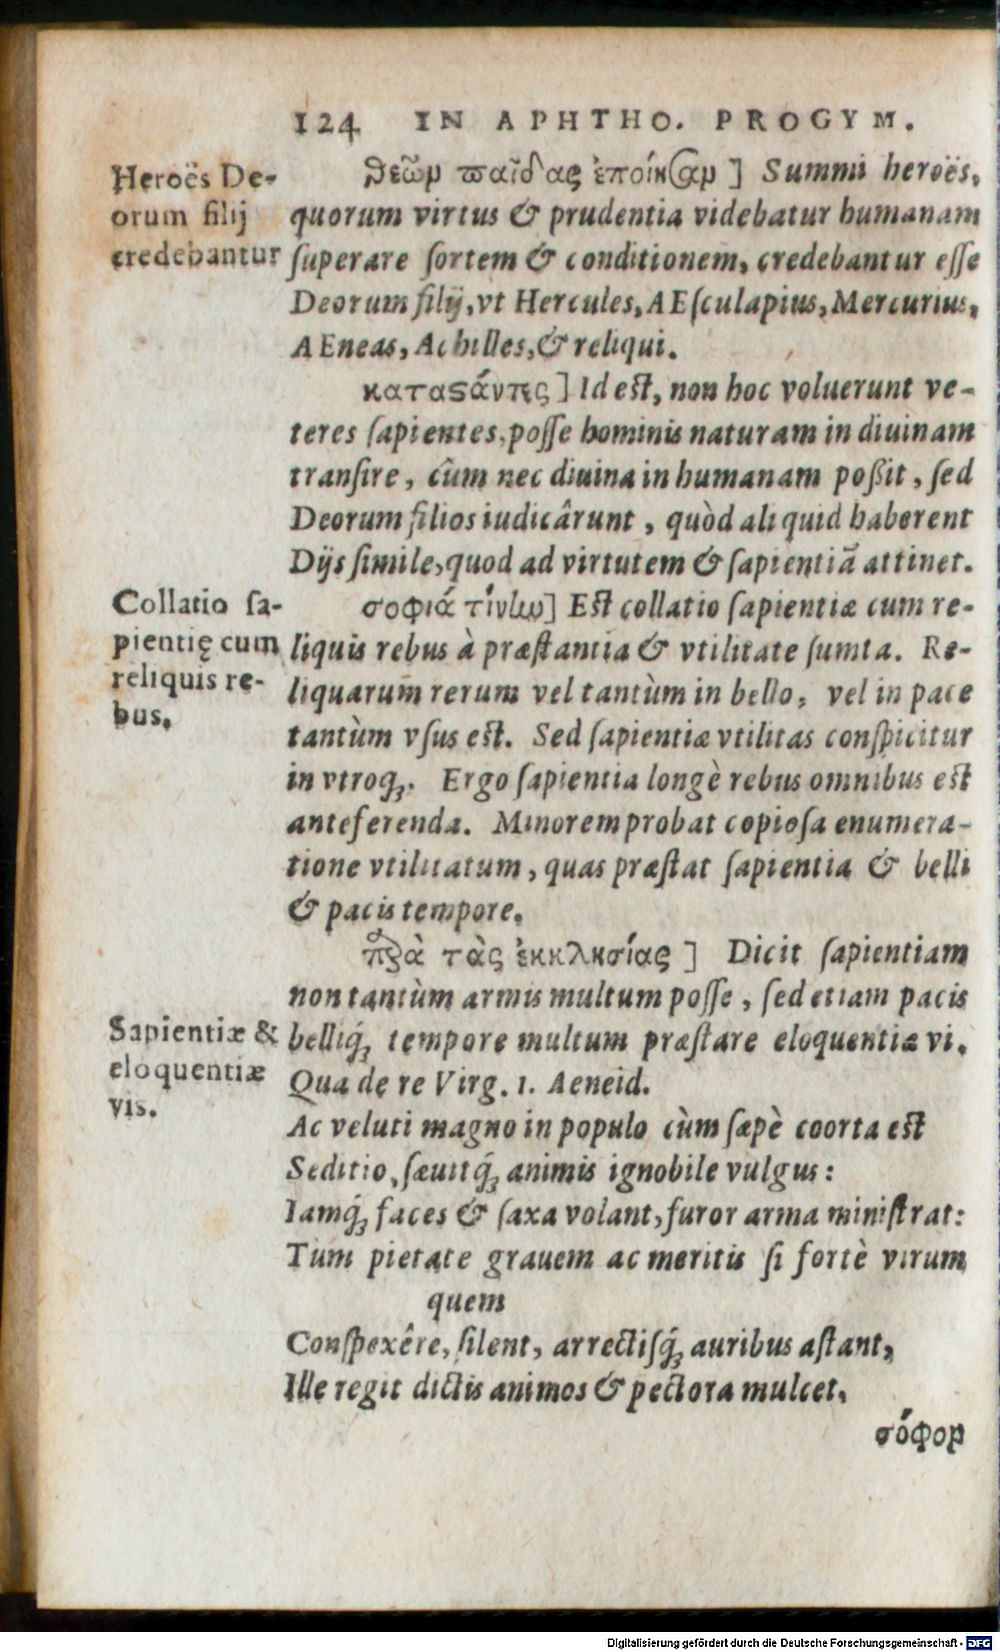 124 IN APHTHO. PROGYM.
Heroës De-
orum filij
credebantur
θεῶν παῖδας ἐποίησαν ] Summi heroës,
quorum virtus & prudentia videbatur humanam
ſuperare ſortem & conditionem, credebantur eſſe
Deorum filij, vt Hercules, AEſculapius, Mercurius,
AEneas, Achilles, & reliqui.
καταϛάντες ] Id eſt, non hoc voluerunt ve-
teres ſapientes, poſſe hominis naturam in diuinam
tranſire, cùm nec diuina in humanam poßit, ſed
Deorum filios iudicârunt, quòd aliquid haberent
Dijs ſimile, quod ad virtutem & ſapientiã attinet.
Collatio ſa-
pientię cum
reliquis re-
bus.
σοφιά τίνω] Eſt collatio ſapientiæ cum re-
liquis rebus à præſtantia & vtilitate ſumta. Re-
liquarum rerum vel tantùm in bello, vel in pace
tantùm vſus eſt. Sed ſapientiæ vtilitas conſpicitur
in vtroq;. Ergo ſapientia longè rebus omnibus eſt
anteferenda. Minorem probat copioſa enumera-
tione vtilitatum, quas præſtat ſapientia & belli
& pacis tempore.
πρὰ τὰς ἐκκλησίας ] Dicit ſapientiam
non tantùm armis multum poſſe, ſed etiam pacis
Sapientiæ &
eloquentiæ
vis.
belliq́; tempore multum præſtare eloquentiæ vi.
Qua de re Virg. 1. Aeneid.
Ac veluti magno in populo cùm ſæpè coorta eſt
Seditio, ſæuitq́; animis ignobile vulgus:
Iamq́; faces & ſaxa volant, furor arma miniſtrat:
Tum pietate grauem ac meritis ſi fortè virum
quem
Conſpexêre, ſilent, arrectiſq́; auribus aſtant,
Ille regit dictis animos & pectora mulcet.
σόφον
Digitalisierung gefördert durch die Deutsche Forschungsgemeinschaft - DFG